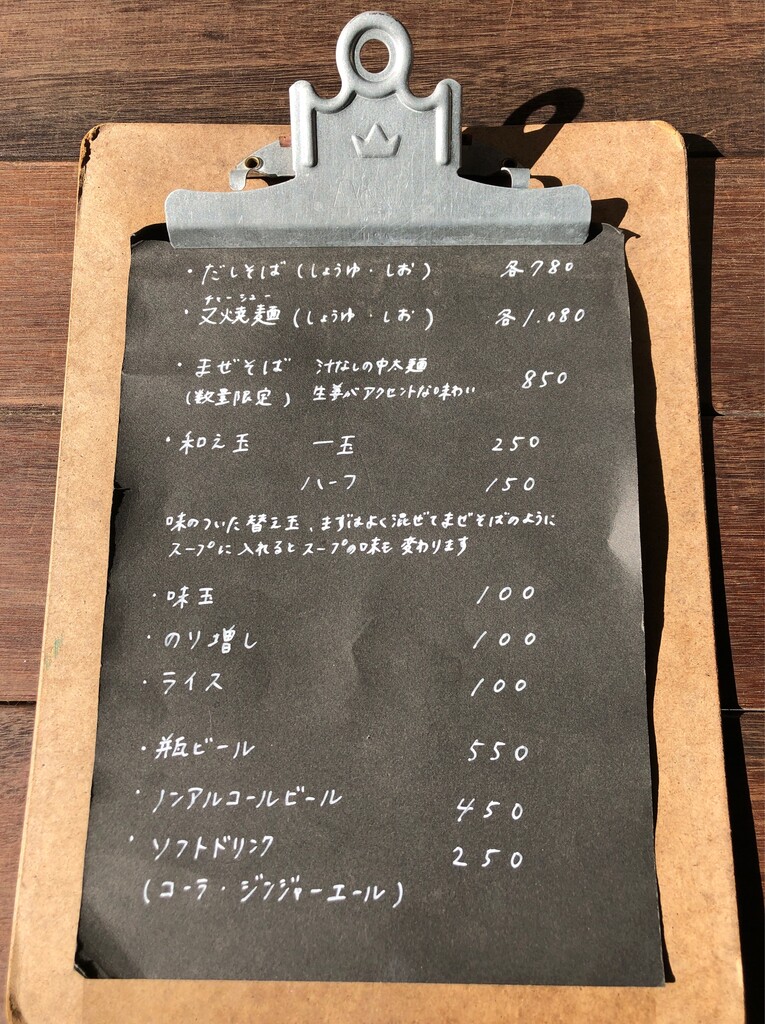 ・だしそば(しょうゆ・しお) 各780
チャーシュー
・叉焼麺(しょうゆ・しお) 各1.080
・まぜそば 汁なしの中太麺 850
(数量限定) 生姜がアクセントな味わい
・和え玉 一玉 250
ハーフ 150
味のついた替え玉、まずはよく混ぜてまぜそばのように
スープに入れるとスープの味も変わります
・味玉 100
・のり増し 100
・ライス 100
・瓶ビール 550
・ノンアルコールビール 450
・ソフトドリンク 250
(コーラ・ジンジャーエール)